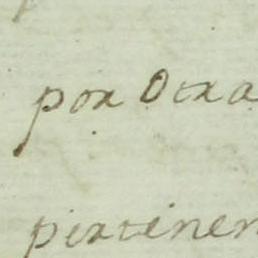 por Otra
pertenen